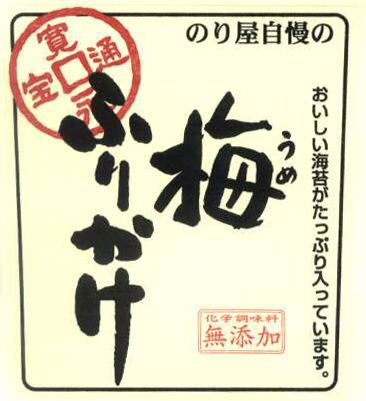 のり屋自慢の
おいしい海苔がたっぷり入っています。
うめ
梅
ふりかけ
寛永通宝
化学調味料
無添加